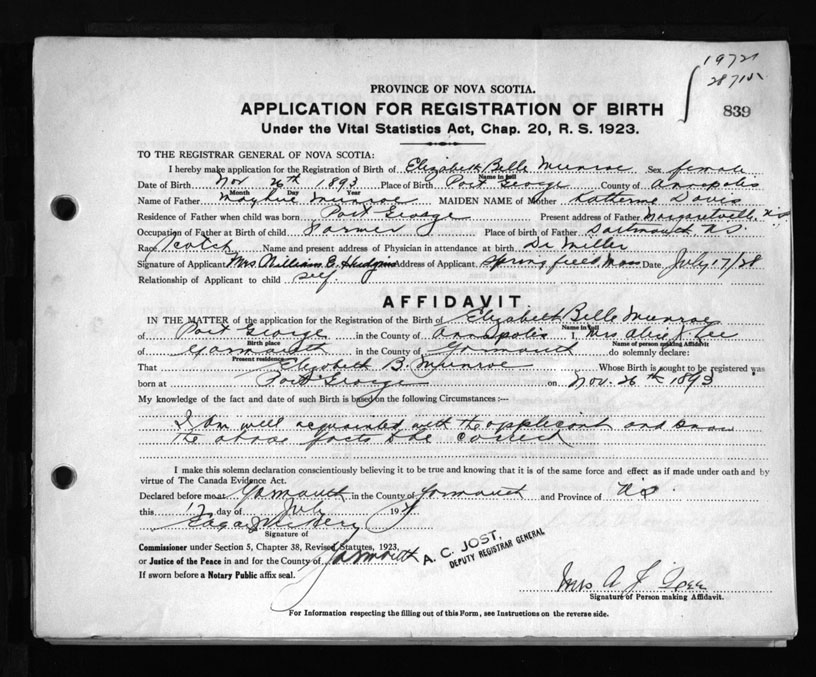 PROVINCE OF NOVA SCOTIA.
839
APPLICATION FOR REGISTRATION OF BIRTH
Under the Vital Statistics Act, Chap. 20, R. S. 1923.
TO THE REGISTRAR GENERAL OF NOVA SCOTIA:
I hereby make application for the Registration of Birth of Elizabeth Belle Munroe Sex female
Name in full
Date of Birth Nov 26th 1893 Place of Birth Port George County of Annapolis
Month Day Year
Name of Father Munroe MAIDEN NAME of Mother Katherine Davis
Residence of Father when child was born Port George Present address of Father Margaretville N.S.
Occupation of Father at Birth of child Farmer Place of birth of Father Dartmouth N.S.
Race Scotch Name and present address of Physician in attendance at birth Dr Miller
Signature of Applicant Mrs William E. Hudgins Address of Applicant Springfield Mass Date July 17/28
Relationship of Applicant to child self.
AFFIDAVIT.
IN THE MATTER of the application for the Registration of the Birth of Elizabeth Belle Munroe
Name in full
of Port George in the County of Annapolis I, Mrs J. Lee
Birth place Name of person making Affidavit
of Yarmouth in the County of Yarmouth do solemnly declare:
Present residence
That Elizabeth B. Munroe Whose Birth is sought to be registered was
born at Port George on Nov. 26th 1893
My knowledge of the fact and date of such Birth is based on the following Circumstances :—
I am well acquainted with the applicant and know
the above facts to be correct
I make this solemn declaration conscientiously believing it to be true and knowing that it is of the same force and effect as if made under oath and by
virtue of The Canada Evidence Act.
Declared before me at Yarmouth in the County of Yarmouth and Province of N S
this 17 day of July 19
Signature of
Commissioner under Section 5, Chapter 38, Revised Statutes, 1923,
or Justice of the Peace in and for the County of Yarmouth
If sworn before a Notary Public affix seal.
A. C. JOST,
DEPUTY REGISTRAR GENERAL
Mrs A J
Signature of Person making Affidavit.
For Information respecting the filling out of this Form, see Instructions on the reverse side.